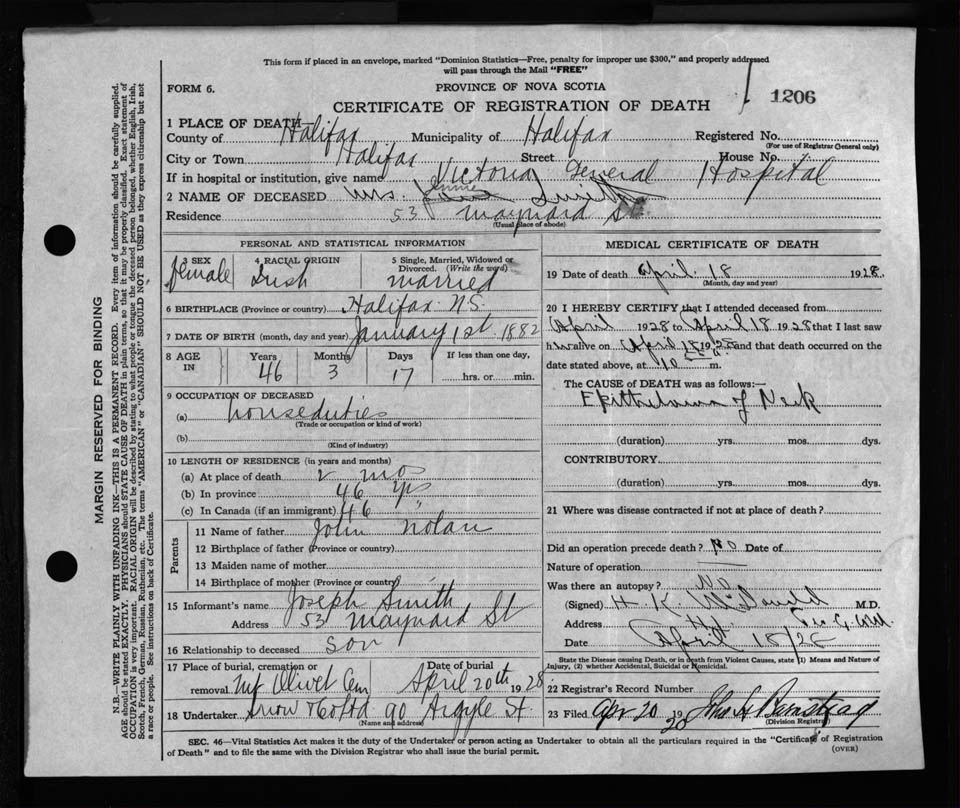 This form if placed in an envelope, marked "Dominion Statistics—Free, penalty for improper use $300," and properly addressed
will pass through the Mail "FREE"
FORM 6.
PROVINCE OF NOVA SCOTIA
CERTIFICATE OF REGISTRATION OF DEATH
1206
1 PLACE OF DEATH—
County of Halifax Municipality of Halifax Registered No.
(For use of Registrar General only)
City or Town Halifax Street House No.
If in hospital or institution, give name Victoria General Hospital
2 NAME OF DECEASED Mrs. Jennie Smith
Residence 53 Maynard St
(Usual place of abode)
PERSONAL AND STATISTICAL INFORMATION
3 SEX Female
4 RACIAL ORIGIN Irish
5 Single, Married, Widowed or Divorced. (Write the word) married
6 BIRTHPLACE (Province or country) Halifax N.S.
7 DATE OF BIRTH (month, day and year) January 1st 1882
8 AGE IN Years 46 Months 3 Days 17 If less than one day, hrs. or min.
9 OCCUPATION OF DECEASED
(a) houseduties
(Trade or occupation or kind of work)
(b)
(Kind of industry)
10 LENGTH OF RESIDENCE (in years and months)
(a) At place of death 2 mos
(b) In province 46 yrs
(c) In Canada (if an immigrant) 46 "
Parents
11 Name of father John Nolan
12 Birthplace of father (Province or country)
13 Maiden name of mother
14 Birthplace of mother (Province or country)
15 Informant's name Joseph Smith
Address 53 Maynard St
16 Relationship to deceased son
17 Place of burial, cremation or removal Mt Olivet Cem Date of burial April 20th 1928
18 Undertaker Snow & Co Ltd 90 Argyle St
(Name and address)
MEDICAL CERTIFICATE OF DEATH
19 Date of death April 18 1928.
(Month, day and year)
20 I HEREBY CERTIFY that I attended deceased from
April 1928 to April 18 1928 that I last saw
her alive on April 18 1928 and that death occurred on the
date stated above, at 10 m.
The CAUSE OF DEATH was as follows:—
Epithelioma of Neck
(duration) yrs. mos. dys.
CONTRIBUTORY
(duration) yrs. mos. dys.
21 Where was disease contracted if not at place of death?
Did an operation precede death? No Date of
Nature of operation
Was there an autopsy? No
(Signed) H. K. McDonald M.D.
Address
Date April 18/28
State the Disease causing Death, or in death from Violent Causes, state (1) Means and Nature of
Injury, (2) whether Accidental, Suicidal or Homicidal.
22 Registrar's Record Number
23 Filed Apr 20 1928 John H Barnstead
(Division Registrar)
SEC. 46—Vital Statistics Act makes it the duty of the Undertaker or person acting as Undertaker to obtain all the particulars required in the "Certificate of Registration
of Death" and to file the same with the Division Registrar who shall issue the burial permit.
(OVER)
MARGIN RESERVED FOR BINDING
N.B.—WRITE PLAINLY WITH UNFADING INK—THIS IS A PERMANENT RECORD. Every item of information should be carefully supplied.
AGE should be stated EXACTLY. PHYSICIANS should STATE CAUSE OF DEATH in plain terms, so that it may be properly classified. Exact statement of
OCCUPATION is very important. RACIAL ORIGIN will be described by stating to what people or tongue the deceased person belonged, whether English, Irish,
Scotch, French, German, Russian, Ruthenian, etc. The terms "AMERICAN" or "CANADIAN" SHOULD NOT BE USED as they express citizenship but not
a race or people. See instructions on back of Certificate.